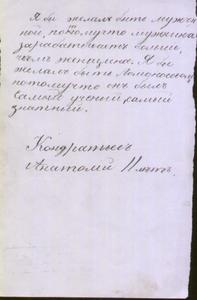 Я бы желалъ быть мужчи
ной, потомучто мужчина
зарабатываетъ больше,
чѣмъ женщина. Я бы
желалъ быть
потомучто онъ былъ
самый ученый самый
знатный.
Кондратьевъ
Анатолий 11 лѣтъ.